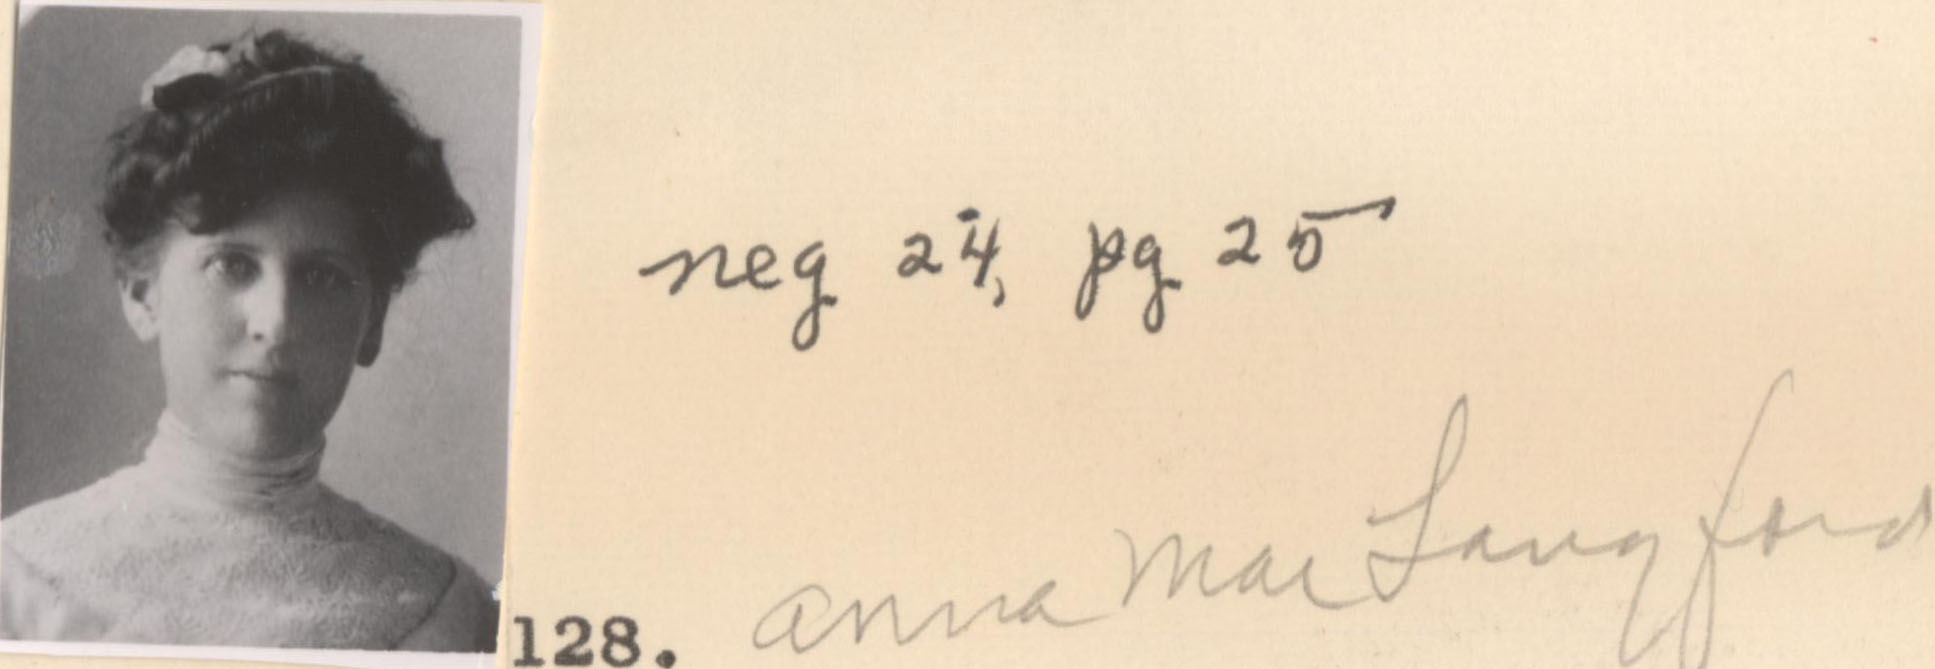 neg 24, pg 25
128. Anna Mae Langford